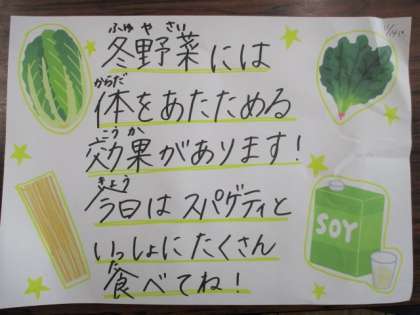 ふゆ や さい
冬野菜には
からだ
体をあたためる
こう か
効果があります!
きょう
今日はスパゲティと
いっしょにたくさん
た
食べてね!
SOY